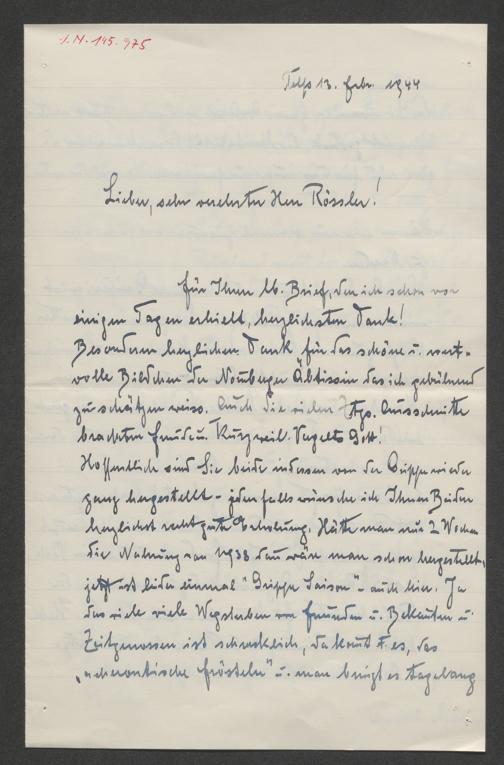 I.N. 195.975
Telfs 13. Febr. 1944
Lieber, sehr verehrter Herr Rössler!
für Ihren lb. Brief, den ich schon vor
einigen Tagen erhielt, herzlichsten Dank!
Besonderen herzlichen Dank für das schöne u. wert-
volle Bildchen der Nonnberger Äbtissin das ich gebührend
zu schätzen weiss. Auch die vielen Ztgs. Ausschnitte
brachten Freude u. Kurzweil. Vergelts Gott!
Hoffentlich sind Sie beide indessen von der Grippe wieder
ganz hergestellt - jedenfalls wünsche ich Ihnen Beiden
herzlichst recht gute Erholung. Hätte man nur 2 Wochen
die Nahrung von 1938 dan wäre man schon hergestellt,
jetzt ist leider einmal "Grippe Saison" - auch hier. Ja
das viele viele Wegsterben von Freunden u. Bekanten u
Zeitgenossen ist schrecklich, da komt es, das
"acherontische frösteln" u. man bringt es tagelang